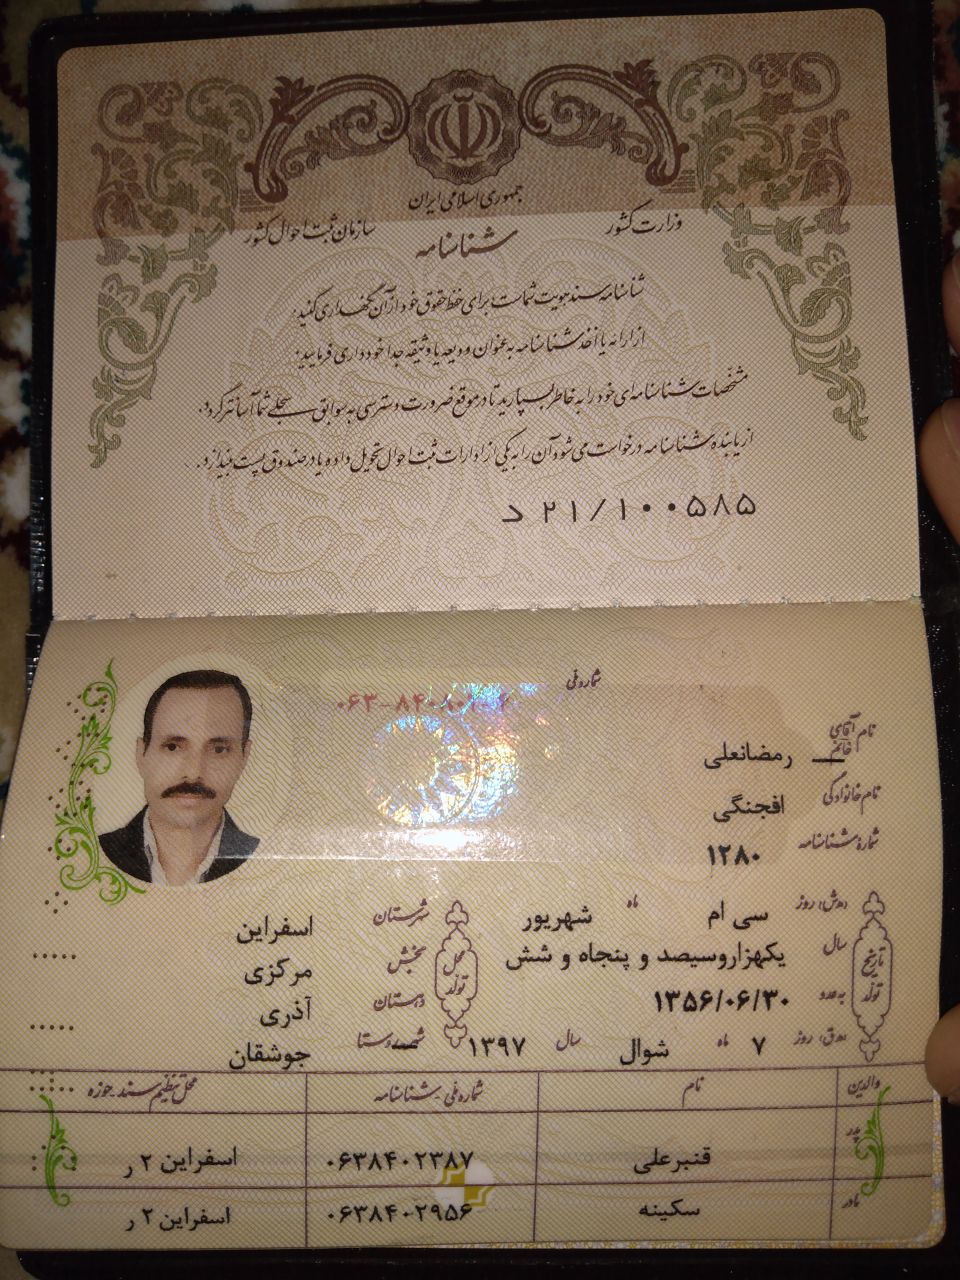 جمهوری اسلامی ایران
وزارت کشور
سازمان ثبت احوال کشور
شناسنامه
شناسنامه سند هویت شماست برای حفظ حقوق خود از آن نگهداری کنید.
از ارائه یا اخذ شناسنامه به عنوان ودیعه یا وثیقه جدا خودداری فرمایید.
مشخصات شناسنامه‌ای خود را به خاطر بسپارید تا در موقع ضرورت دسترسی به سوابق سجلی شما آسانتر گردد.
از یابنده شناسنامه درخواست می‌شود آن را به یکی از ادارات ثبت احوال تحویل داده یا در صندوق پست بیندازد.
د ۲۱/۱۰۰۵۸۵
شماره ملی
نام آقای خانم رمضانعلی
نام خانوادگی افجنگی
شماره شناسنامه ۱۲۸۰
تاریخ تولد
(ه.ش) روز سی ام ماه شهریور
سال یکهزاروسیصد و پنجاه و شش
به عدد ۱۳۵۶/۰۶/۳۰
(ه.ق) روز ۷ ماه شوال سال ۱۳۹۷
محل تولد
شهرستان اسفراین
بخش مرکزی
دهستان آذری
شهر روستا جوشقان
والدین نام شماره ملی - شناسنامه محل تنظیم سند - حوزه
پدر قنبرعلی ۰۶۳۸۴۰۲۳۸۷ اسفراین ۲ ر
مادر سکینه ۰۶۳۸۴۰۲۹۵۶ اسفراین ۲ ر